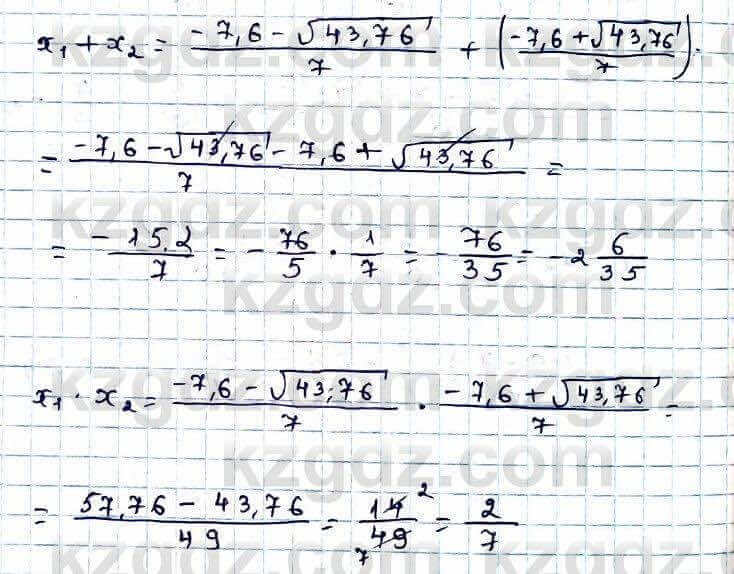 x₁ + x₂ = (-7,6 - √43,76)/7 + ((-7,6 + √43,76)/7).
= (-7,6 - √43,76 - 7,6 + √43,76)/7 =
= -15.2/7 = - 76/5 · 1/7 = - 76/35 = -2 6/35
x₁ · x₂ = (-7,6 - √43,76)/7 · (-7,6 + √43,76)/7 =
= (57,76 - 43,76)/49 = 14 2/49 7 = 2/7
kzgdz.com